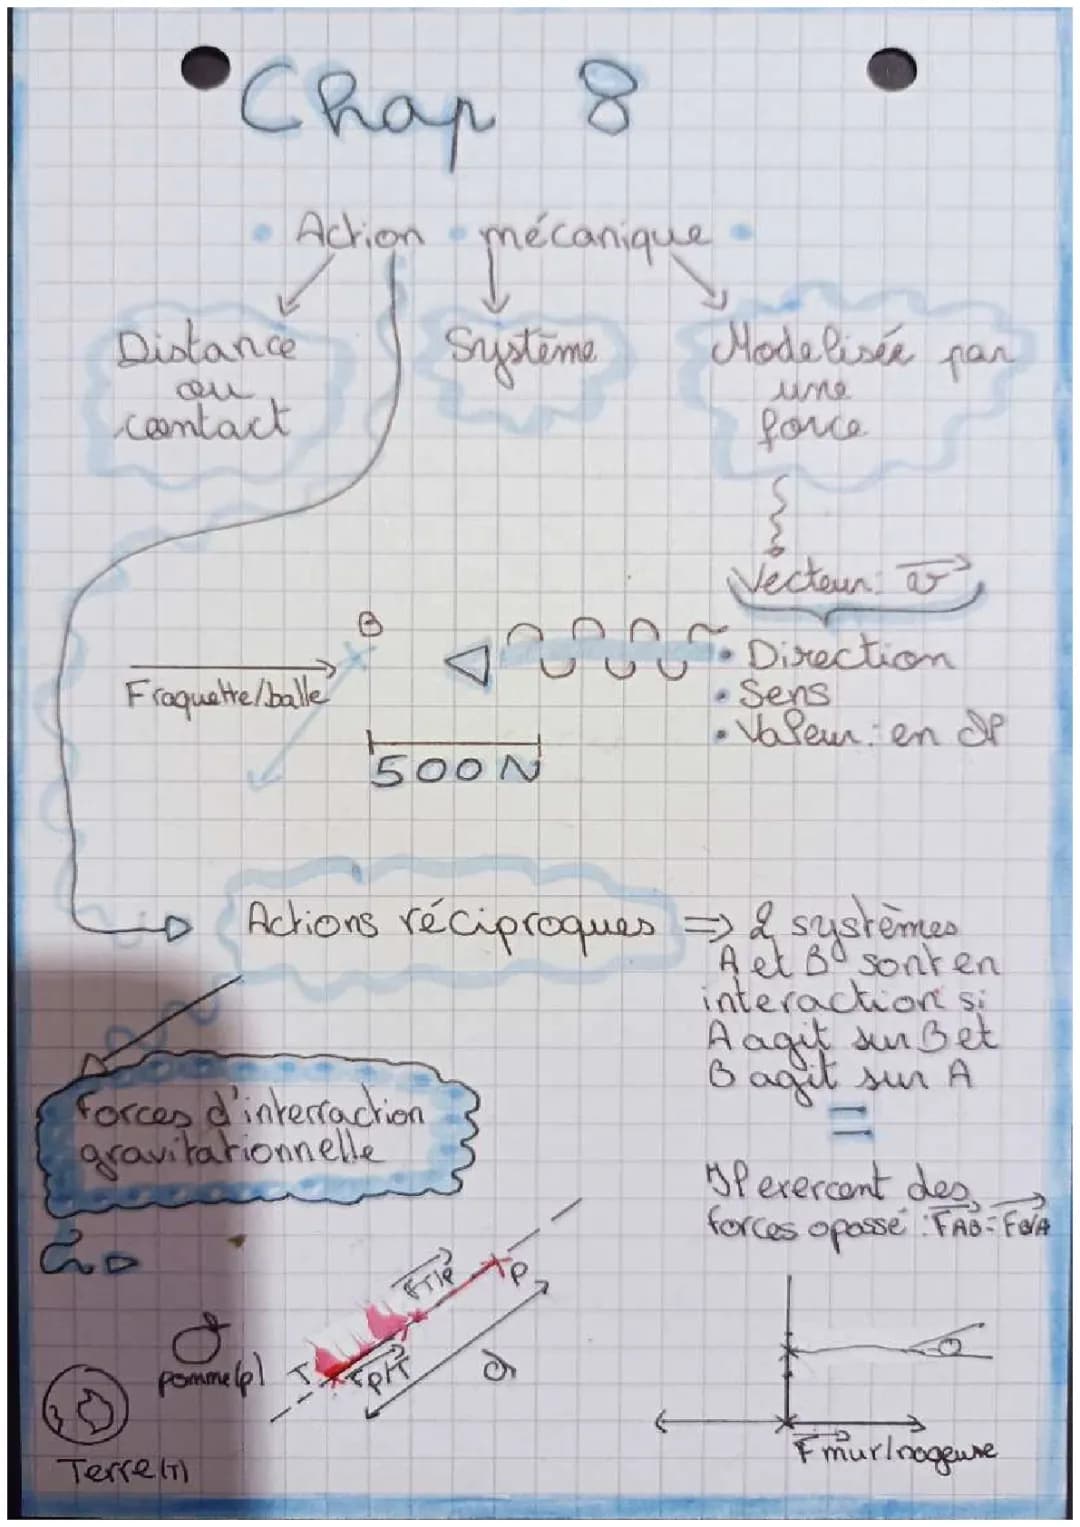 Chap 8
• Action • mécanique •
Distance
ou
contact
Système
Modelisée par
une
force
Vecteur: v
• Direction
• Sens
• Valeur: en N
B
Fraquette/balle
500 N
Actions réciproques => 2 systèmes
A et B sont en
interaction si
A agit sur B et
B agit sur A
=
Il exercent des
forces oposse : FAB = FB/A
Forces d'interraction
gravitationnelle
pomme (p)
Terre (T)
T
FT/P
P
FP/T
d
Fmur/nageuse